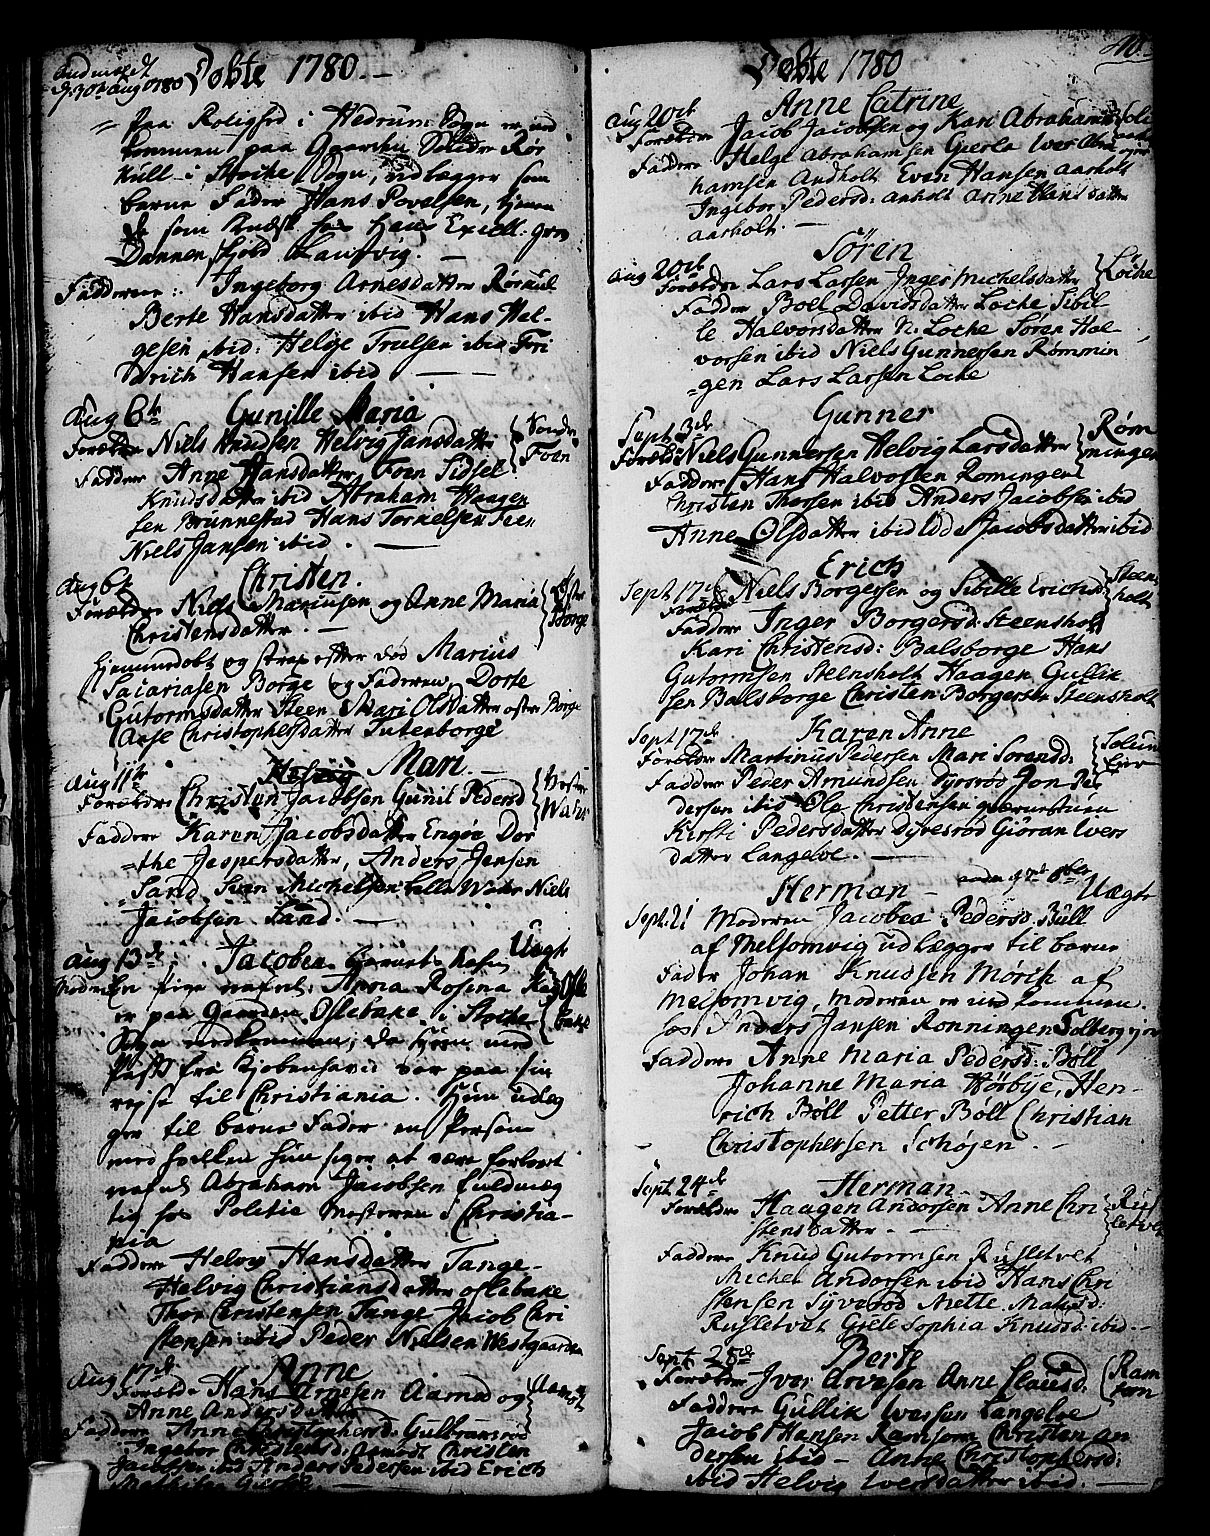 Dobte 1780.
d. 30t Aug 1780
paa Rolighed i Hedrum Sogn er ud
kommen paa Gaarden Røre
kull i Stocke Sogn, udlægger som
barne Fader Hans Povelsen, tjener
som Kudsk hos Hans Excell: Grev
Danneskjold Laurvig. —
Fadderne: Ingeborg Arnesdatter Rørkul
Berte Hansdatter ibid Hans Hal-
gesen ibid: Helge Trulsen ibid Fri
derich Hansen ibid —
Aug 6te Gunille Maria
Forældre Niels Knudsen Helvig Jansdatter Sondre Foen
Faddere Anne Hansdatter Foen Sidsel
Knudsdatter ibid Abraham Haagen
sen Brunnestad Hans Tornelsen Foen
Niels Jansen ibid. —
Aug 6te Christen.
Forældre Niels Mariusen og Anne Maria
Christensdatter. — Borge
hjemmedøbt og strax efter død Marius
Sacariasen Borge og Fadderne Dorte
Gutormsdatter Steen Mari Olsdatter øfre Borge
Aase Christophersdatter
Aug 11te Mari. —
Forældre Christen Jacobsen Gunil Pedersd
Faddere Karen Jacobsdatter Engøe Dor
the Jespersdatter, Anders Jensen
Sand, Sven Michelsen Niels
Jacobsen Sand. —
Aug 13de Jacobea Uægte
Moderen En pige nafnl: Anna Rosina
er paa Gaarden Oslebake i Stocke
Sogn nedkommen; da hun med
fra Kjøbenhavn var paa sin
rejse til Christiania. Hun udlæg
ger til barne Fader en Person
med hvilken hun siger at være forlovet
nafnl Abraham Jacobsen fuldmæg
tig hos Politie Mesteren i Christia-
nia
Faddere Helvig Hansdatter Tange-
Helvig Christiansdatter Oslebake
Thor Christensen Tange Jacob Chri
stensen ibid Peder Nielsen Westgaarden
Aug 17de Anne
Forældre Hans Arnesen Aamod og Aamot
Anne Andersdatter
Faddere Anne Christophersd: Gulbransrød
Ingebor Christensd: Aamodt Christen
Jacobsen ibid Anders Pedersen ibid Erich
Mathisen
Dobte 1780
40.
Anne Catrine
Aug 20de
Forældre Jacob Jacobsen og Kari Abrahamsd
Faddere Helge Abrahamsen Geerla Iver Abra
hamsen Andholt Even Hansen aarholt
Ingebor Pedersd: anholt Anne Hans datter
aarholt. —
Sören
Aug 20de
Forældre Lars Larsen Inger Michelsdatter Løche
Faddere Boel Davidsdatter Løche Sibil
le Halvorsdatter N. Løche Søren Hal-
vorsen ibid Niels Gunnersen Rømmin
gen Lars Larsen Løche
Gunner
Sept 3de
Forældre Niels Gunnersen Helvig Larsdatter Røm
mingen
Faddere Hans Halvorsen Romingen
Christen Thorsen ibid Anders Jacobsen ibid
Anne Olsdatter ibid Edde Jacobsdatter ibid
Erich
Sept 17de Niels Borgersen og Sibille Erichsd Steens
holt
Forældre
Faddere Inger Borgersd: Steensholt
Kari Christensd: Balsborge Hans
Gutormsen Steensholt Haagen Gullik
sen Balsborge Christen Borgersen Steensholt
Sept 17de Karen Anne
Forældre Martinus Pedersen Mari Sorensd:
Faddere Peder Amundsen Dyrsrød Jon Pe
dersen ibid Ola Christensen
Kirsti Pedersdatter Dyresrød Giöran Ivers
datter Langelve. —
Herman — Uægte
Sept. 21 Moderen Jacobea Pedersd: Bull
af Melsomvig udlægger til barne
Fader Johan Knudsen Mörch af
Melsomvig, Moderen er nedkommen
hos Anders Jansen Ronningen Solberg ejer
Faddere Anne Maria Pedersd: Böll
Johanne Maria Hörbye, Hen-
rich Böll Petter Böll Christian
Christophersen Schøjen. —
Sept 24de Herman
Forældre Haagen Andorsen Anne Chri
stensdatter. — Rus
letvet
Faddere Knud Gutormsen Rusletvet
Michel Andorsen ibid Hans Chri
stensen Syverød Mette Matisd:
Rusletvet Giele Sophia Knudsd: ibid. —
Sept 28de Berte
Forældre Ivor Arvesen Anne Clausd: Ram
som
Faddere Gullik Iversen Langelve
Jacob Hansen Ramsom Christen An
dersen ibid — Anne Christophersd:
ibid Helvig Iversdatter ibid. —